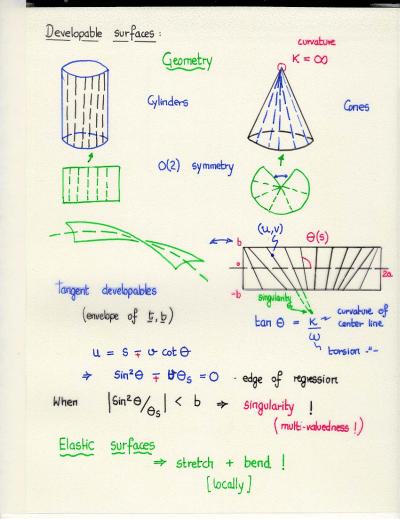 Developable surfaces :
curvature
K = ∞
Geometry
Cylinders
Cones
O(2) symmetry
(u,v)
θ(s)
b
o
-b
2a
singularity
tangent developables
(envelope of t, b)
tan θ = K/ω
curvature of
center line
torsion -"-
u = s ∓ v cot θ
⇒ sin²θ ∓ vθs = 0 · edge of regression
When |sin²θ/θs| < b ⇒ singularity !
(multi-valuedness !)
Elastic surfaces
⇒ stretch + bend !
[locally]